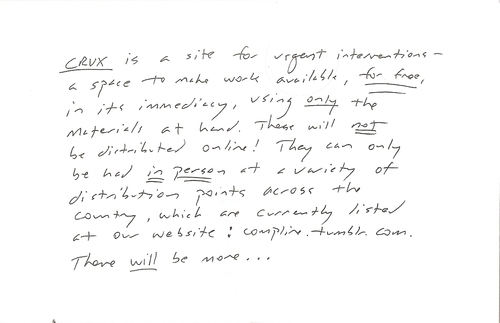 CRUX is a site for urgent interventions–
a space to make work available, for free,
in its immediacy, using only the
materials at hand. These will not
be distributed online! They can only
be had in person at a variety of
distribution points across the
country, which are currently listed
at our website: compline.tumblr.com.
There will be more...